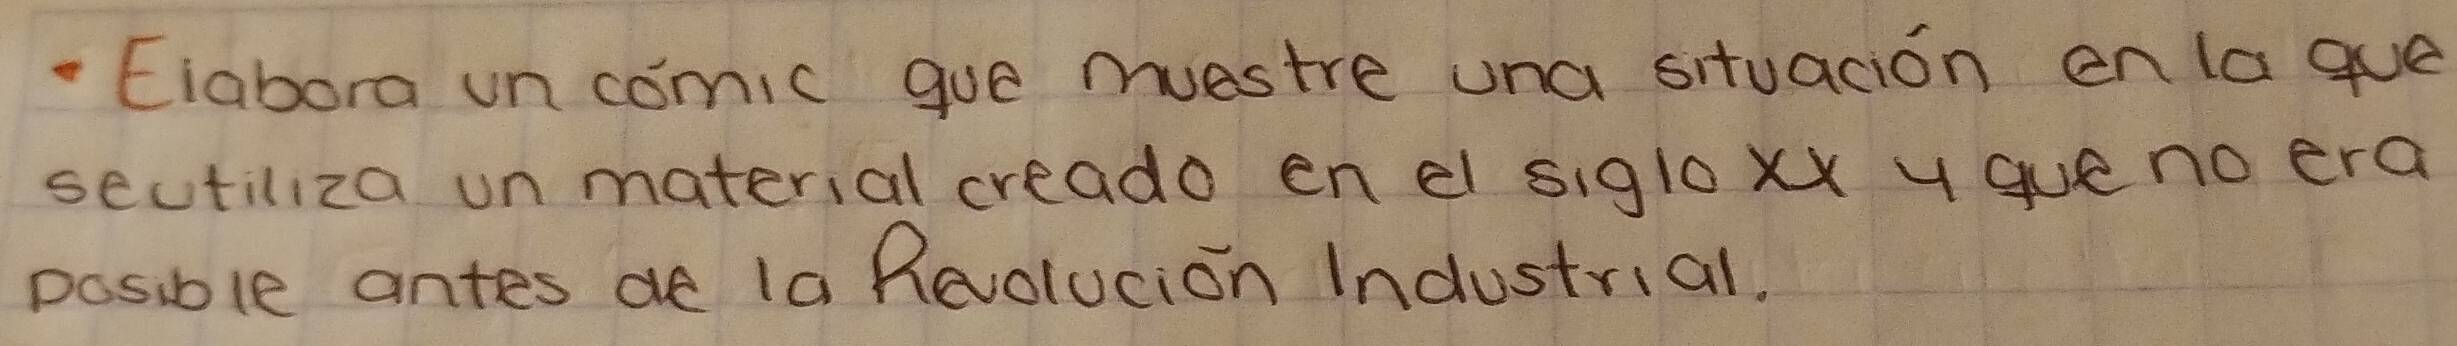 • Elabora un cómic que muestre una situación en la que
se utiliza un material creado en el siglo XX y que no era
posible antes de la Revolución Industrial.